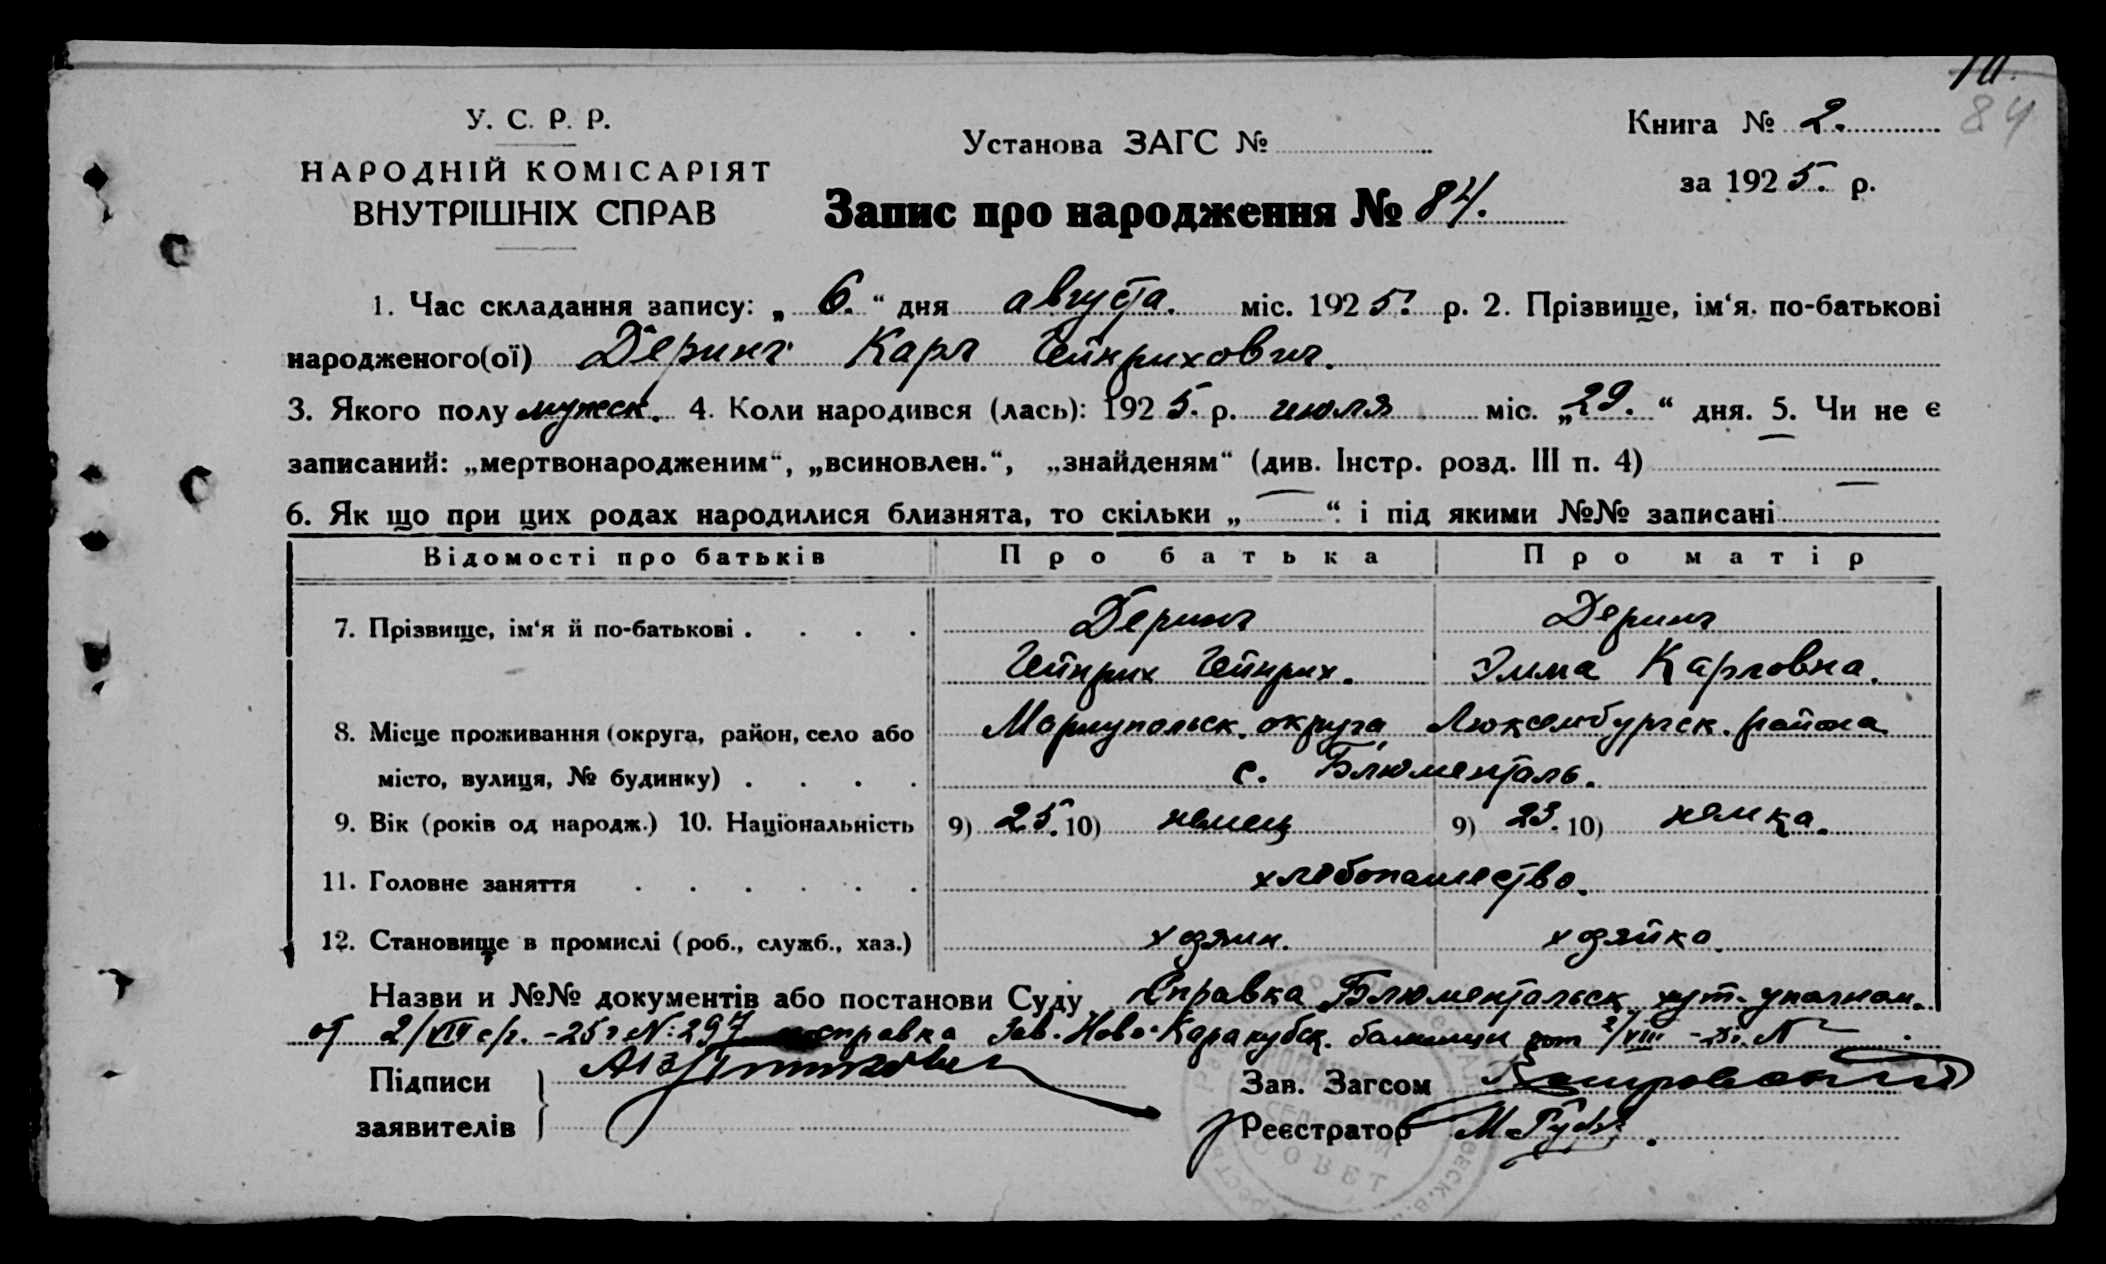 84
У. С. Р. Р.
НАРОДНІЙ КОМІСАРІЯТ
ВНУТРІШНІХ СПРАВ
Установа ЗАГС №
Книга № 2.
за 1925. р.
Запис про народження № 84.
1. Час складання запису: „ 6. “ дня августа. міс. 1925. р. 2. Прізвище, ім‘я. по-батькові
народженого(ої) Деринг Карл Гейнрихович.
3. Якого полу мужск. 4. Коли народився (лась): 1925. р. июля міс. „29.“ дня. 5. Чи не є
записаний: „мертвонародженим“, „всиновлен.“, „знайденям“ (див. Інстр. розд. III п. 4) —
6. Як що при цих родах народилися близнята, то скільки „ — “ і під якими №№ записані —
Відомості про батьків Про батька Про матір
7. Прізвище, ім‘я й по-батькові . . . . Деринг Деринг
Гейнрих Гейнрих. Эмма Карловна.
8. Місце проживання (округа, район, село або Мариупольск. округа, Люксембургск. района
місто, вулиця, № будинку) . . . . с. Блюменталь.
9. Вік (років од народж.) 10. Національність 9) 25. 10) немец 9) 23. 10) немка.
11. Головне заняття . . . . . . хлебопашество.
12. Становище в промислі (роб., служб., хаз.) хозяин. хозяйка.
Назви и №№ документів або постанови Суду Справка Блюментальск. хут. уполном.
от 2/VIII с/г. -25 г № 297 справка Зав. Ново-Каракубск. больницы от 2/VIII -25. №
Підписи
заявителів
Зав. Загсом
Реєстратор
СОВЕТ